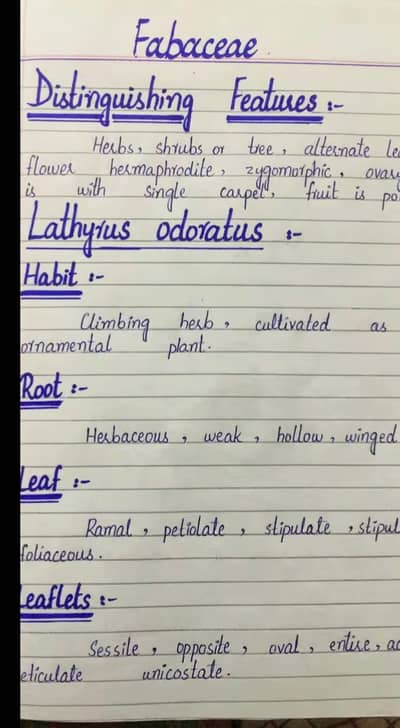 Fabaceae
Distinguishing Features :-
Herbs, shrubs or tree, alternate
flower hermaphrodite, zygomorphic,
is with single carpel, fruit is
Lathyrus odoratus :-
Habit :-
Climbing herb, cultivated as
ornamental plant.
Root :-
Herbaceous, weak, hollow, winged
Leaf :-
Ramal, petiolate, stipulate,
foliaceous.
Leaflets :-
Sessile, opposite, oval, entire,
eticulate unicostate.